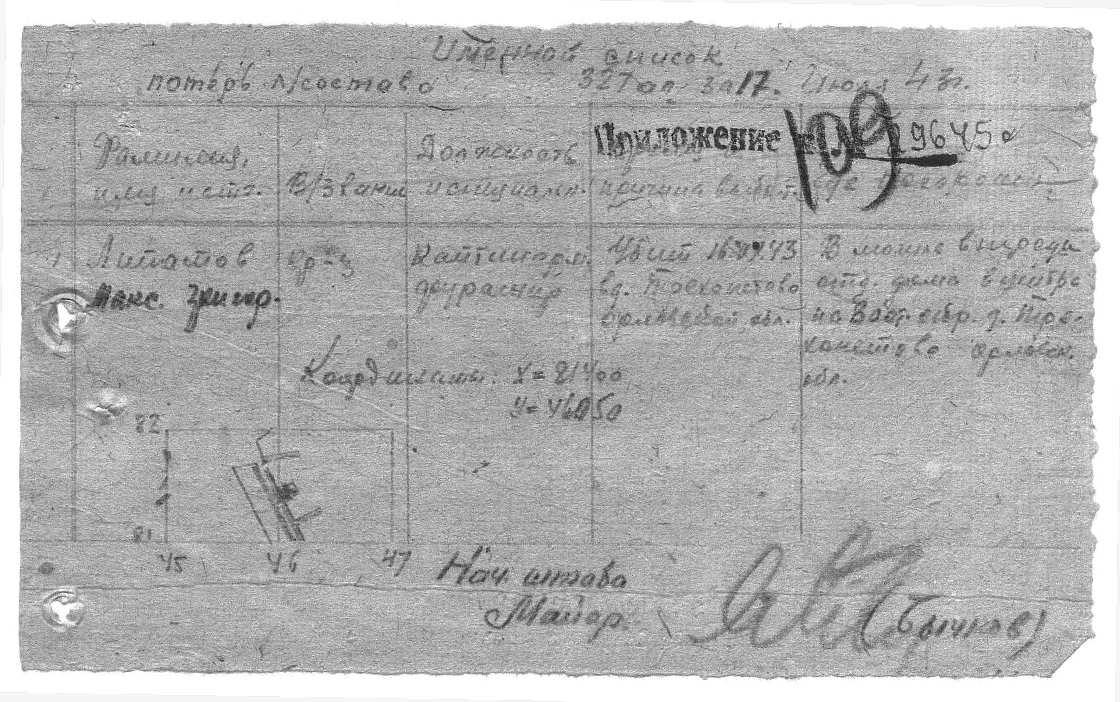 Именной список
потерь л/состава 327 ап за 17. Июля 43г.
Приложение 109 9645с
Фамилия, имя и отч.
В/звание
Должность и специальн.
причина выбыт.
где похоронен
1
Липатов Макс. Григор.
кр-ц
Катушечн.
Убит 16.07.43 в д. Трехонетово Орловской обл.
В могиле впереди отд. дома в центре на Вост. окр. д. Трехонетово Орловск. обл.
Координаты: X = 81400
У = 46050
82
81
45 46 47
Нач. штаба
Майор (Бычков)